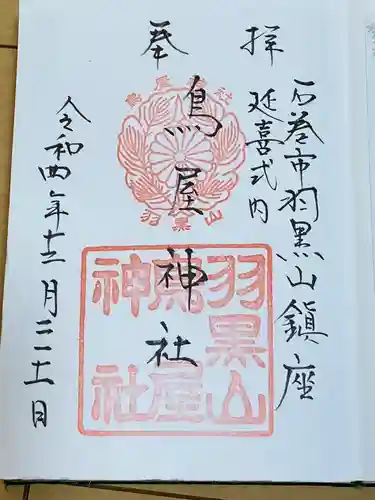 奉拝
石巻市羽黒山鎮座
延喜式内
鳥屋神社
令和四年十二月三十一日
羽黒山
鳥屋
神社
羽黒山